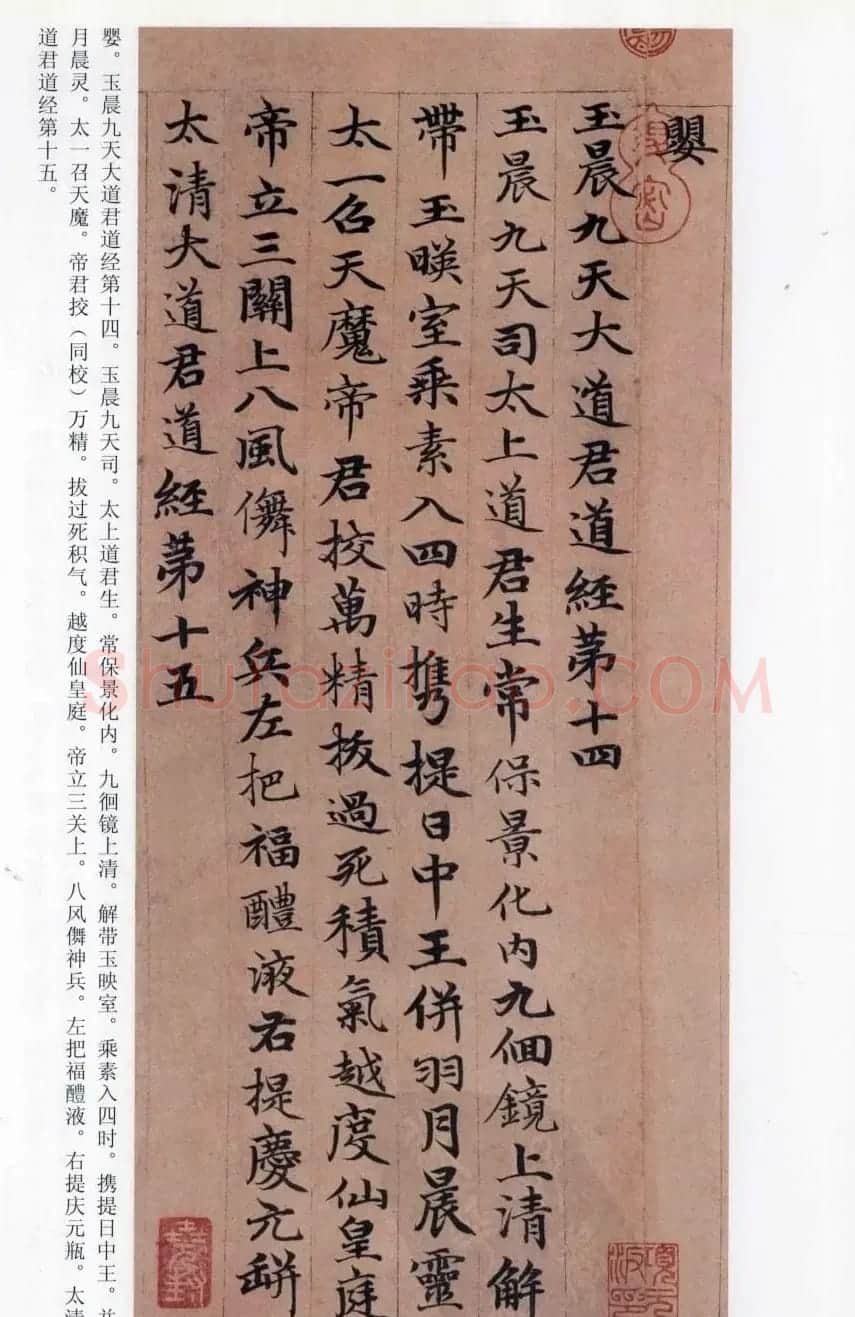 嬰
玉晨九天大道君道經苐十四
玉晨九天司太上道君生常保景化内九佪鏡上清解
帶玉暎室乗素入四時携提日中王併羽月晨靈
太一召天魔帝君挍萬精拔過死積氣越度仙皇庭
帝立三關上八風儛神兵左把福醴液右提慶元缾
太清大道君道經苐十五
嬰。玉晨九天大道君道经第十四。玉晨九天司。太上道君生。常保景化内。九徊镜上清。解带玉映室。乘素入四时。携提日中王。
月晨灵。太一召天魔。帝君挍（同校）万精。拔过死积气。越度仙皇庭。帝立三关上。八风儛神兵。左把福醴液。右提庆元瓶。太清
道君道经第十五。